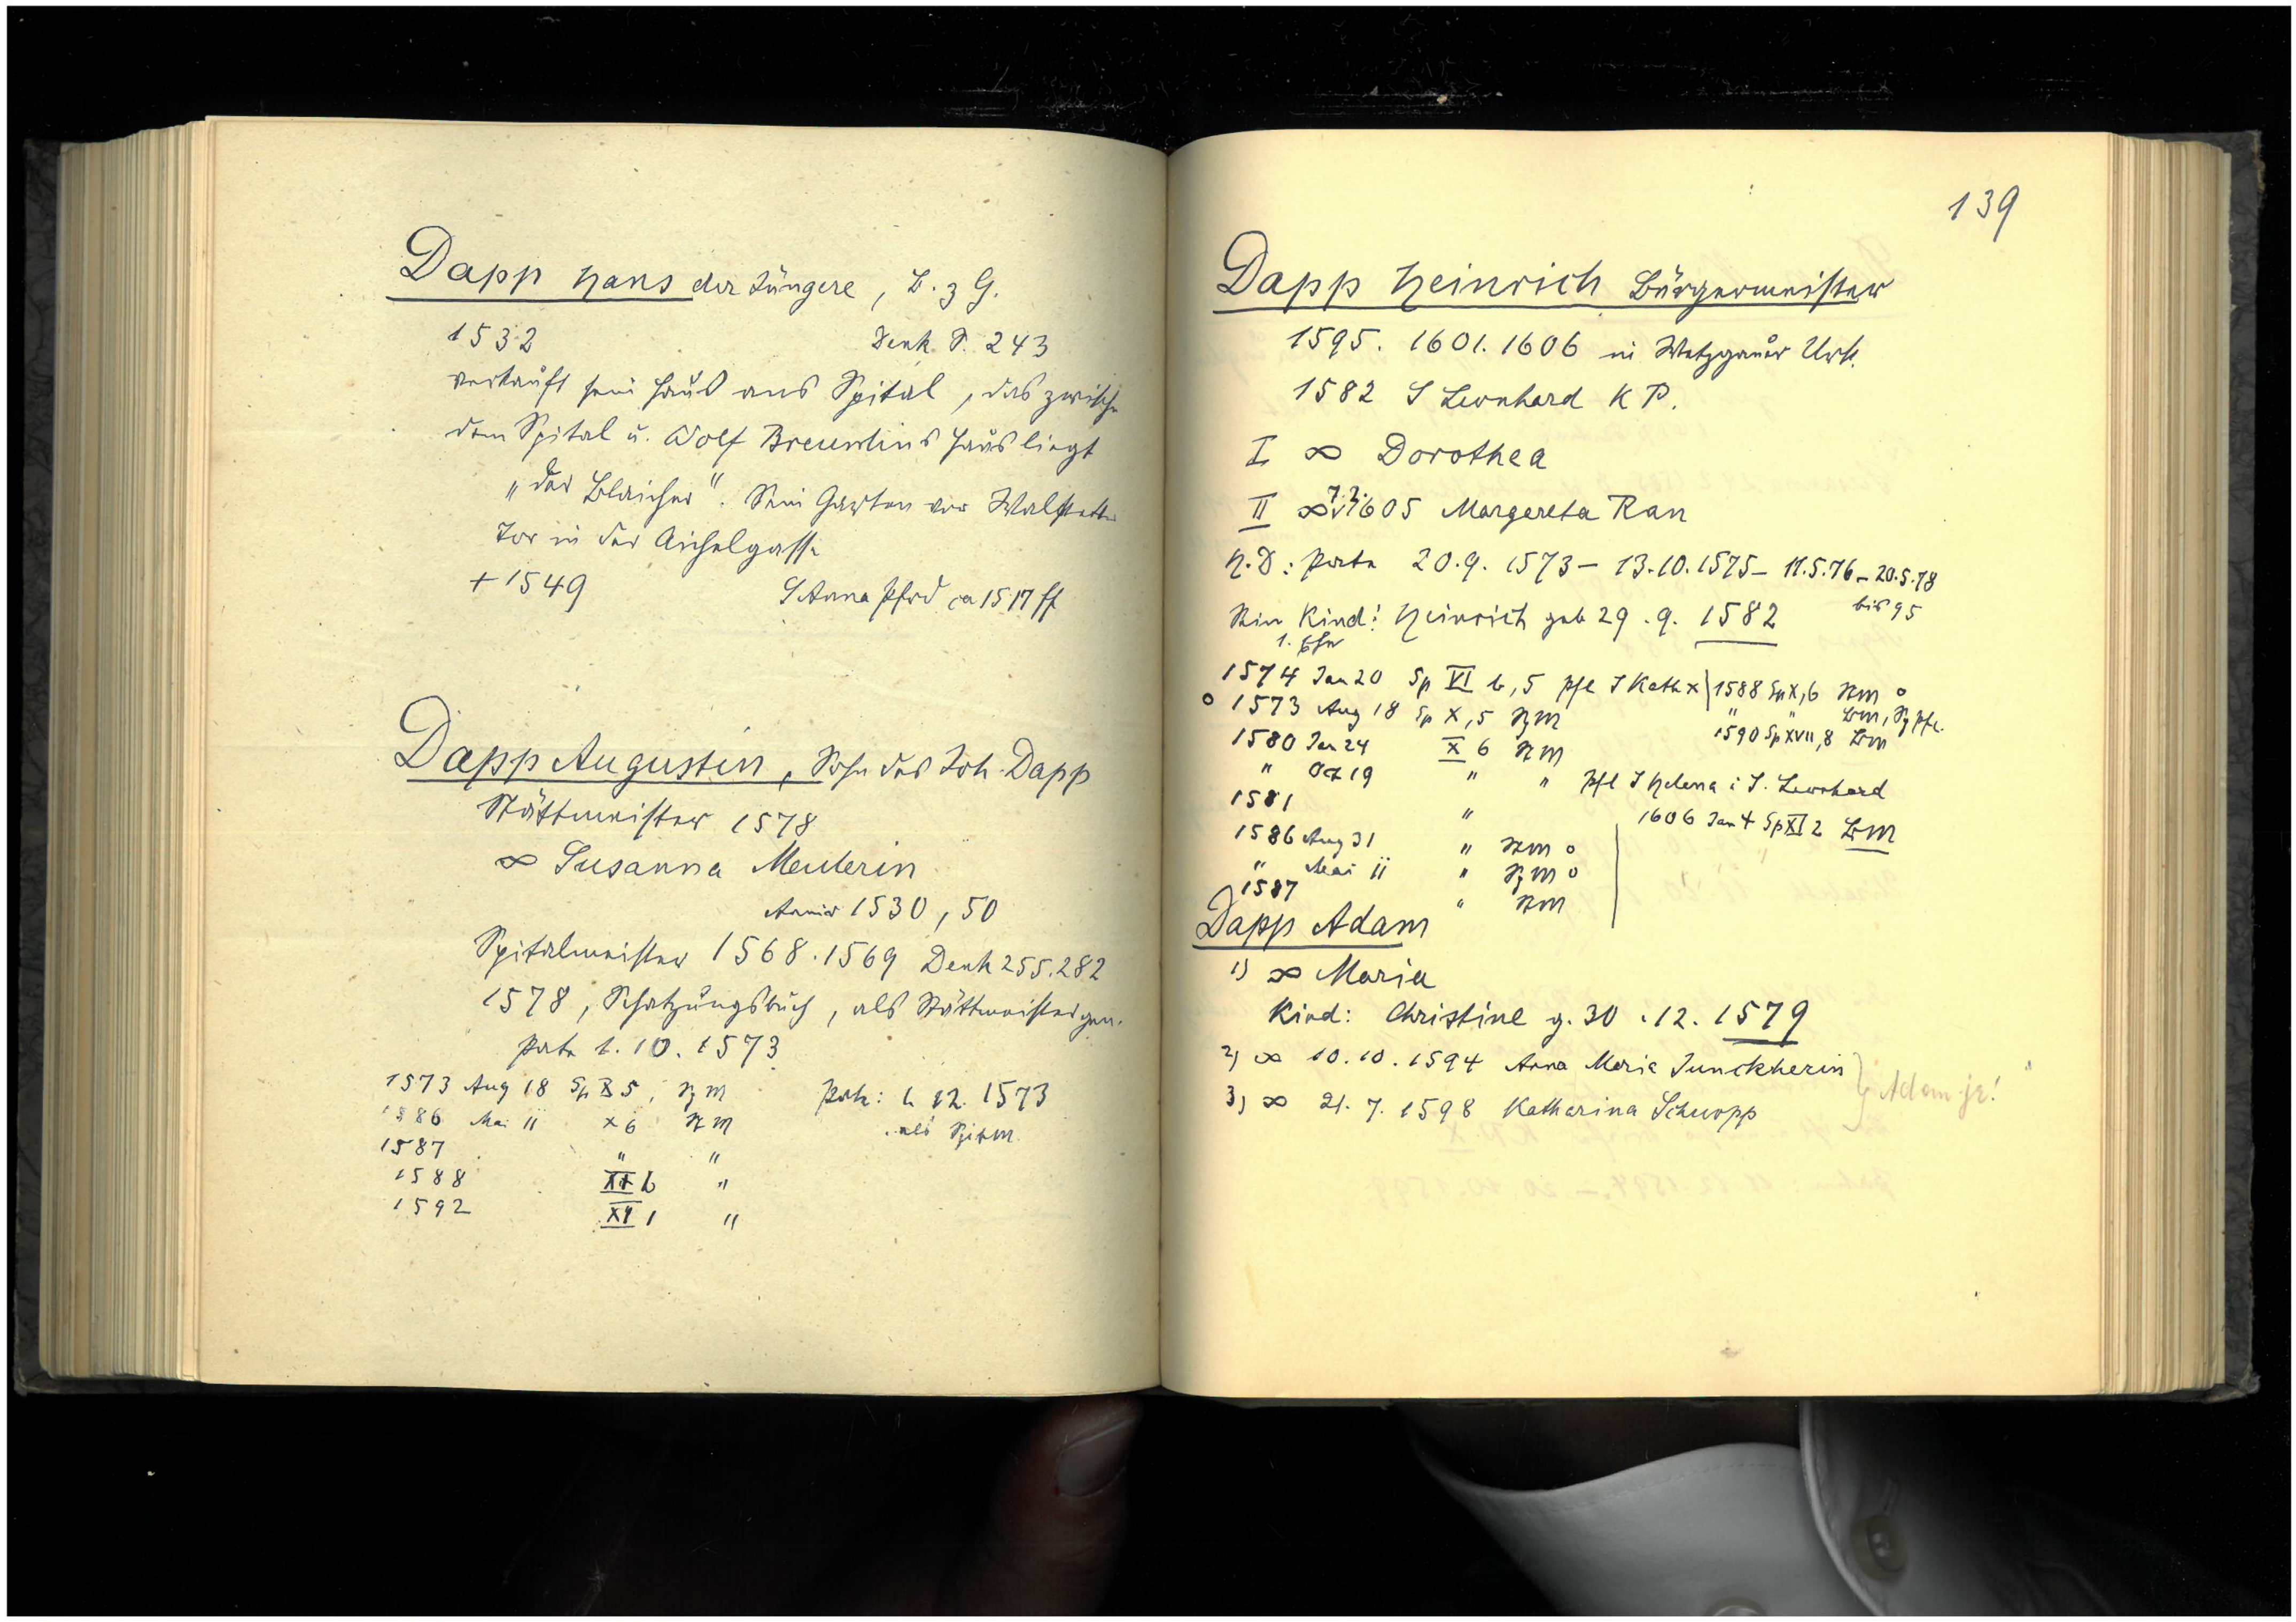 Dapp Hans der Jüngere, B. z G.
1532 Denk S. 243
verkauft sein Haus ans Spital, das zwische
dem Spital u. Wolf Breunlins Haus liegt
"der Blaicher". Sein Garten vor Walstett
Tor in der Aichelgasse
+ 1549 S Anna Pfrd ca 1517 ff
Dapp Augustin, Sohn des Joh. Dapp
Stättmeister 1578
∞ Susanna Meulerin
1530, 50
Spitalmeister 1568. 1569 Denk 255. 282
1578, Schatzungsbuch, als Stättmeister gen.
Pate 1. 10. 1573
1573 Aug 18 Sp X 5, Sp M Pate: 1. 12. 1573
1586 Mai 11 X 6 St M als Spitm.
1587 " "
1588 b "
1592 XI 1 "
139
Dapp Heinrich Bürgermeister
1595. 1601. 1606 in Wetzgauer Urk.
1582 S Leonhard K P.
I ∞ Dorothea
II ∞ 7.2. 1605 Margereta Ran
H. D: Pate 20. 9. 1573 – 13. 10. 1575 – 11. 5. 76 – 20. 5. 78
bis 95
Sein Kind: Heinrich geb 29. 9. 1582
1. Ehe
1574 Jan 20 Sp VI b, 5 Pfl S Kath x 1588 Sp X, 6 StM o
o 1573 Aug 18 Sp X, 5 SpM " " BM, Sp Pfl.
1580 Jan 24 X 6 StM 1590 Sp XVII, 8 BM
" Oct 19 " " Pfl S Helena i S. Leonhard
1581 " 1606 Jan 4 Sp XI 2 BM
1586 Aug 31 " StM o
" Mai 11 " SpM o
1587 " StM
Dapp Adam
1) ∞ Maria
Kind: Christine g. 30. 12. 1579
2) ∞ 10. 10. 1594 Anna Maria Junckherin
3) ∞ 21. 7. 1598 Katharina Schuopp
Adam jr!